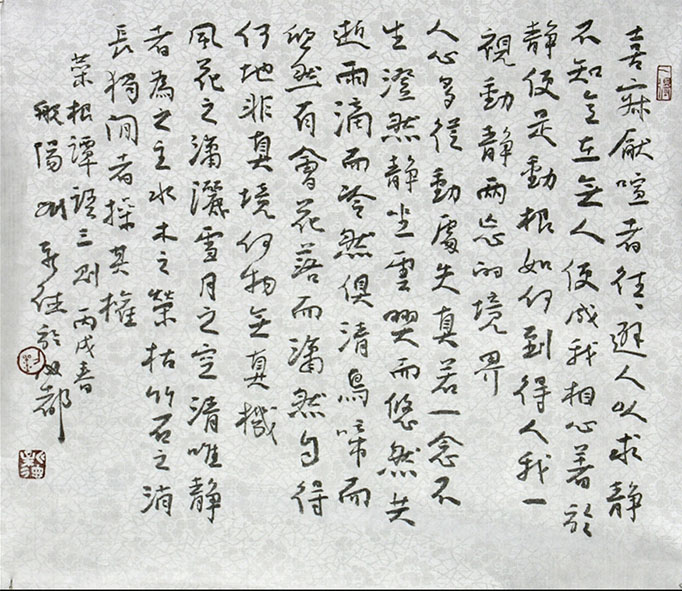 喜寂厭喧者往々避人以求静
不知意在無人便成我相心著於
静便是動根如何到得人我一
視動静两忘的境界
人心多從動處失真若一念不
生澄然静坐雲興而悠然共
逝雨滴而冷然俱清鳥啼而
欣然有會花落而瀟然自得
何地非真境何物無真機
風花之瀟灑雪月之空清唯静
者為之主水木之榮枯竹石之消
長獨閒者操其權
菜根譚語三則 丙戌春
般陽 於 都